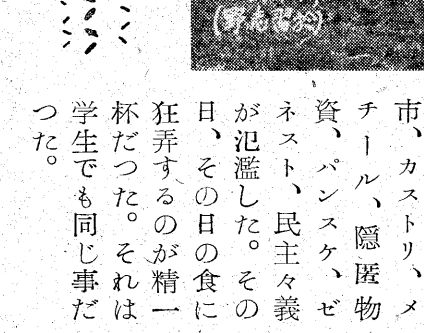 市、カストリ、メ
チール、隠匿物
資、パンスケ、ゼ
ネスト、民主々義
が氾濫した。その
日、その日の食に
狂弄するのが精一
杯だつた。それは
学生でも同じ事だ
つた。